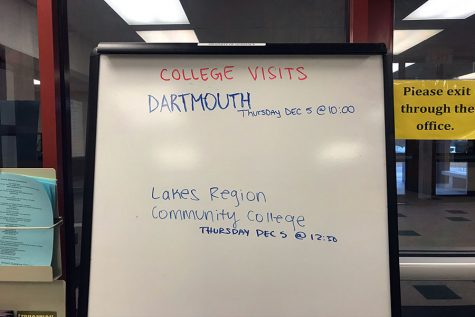 COLLEGE VISITS
DARTMOUTH
THURSDAY DEC 5 @ 10:00
Please exit
through the
office.
Lakes Region
Community College
THURSDAY DEC 5 @ 12:30